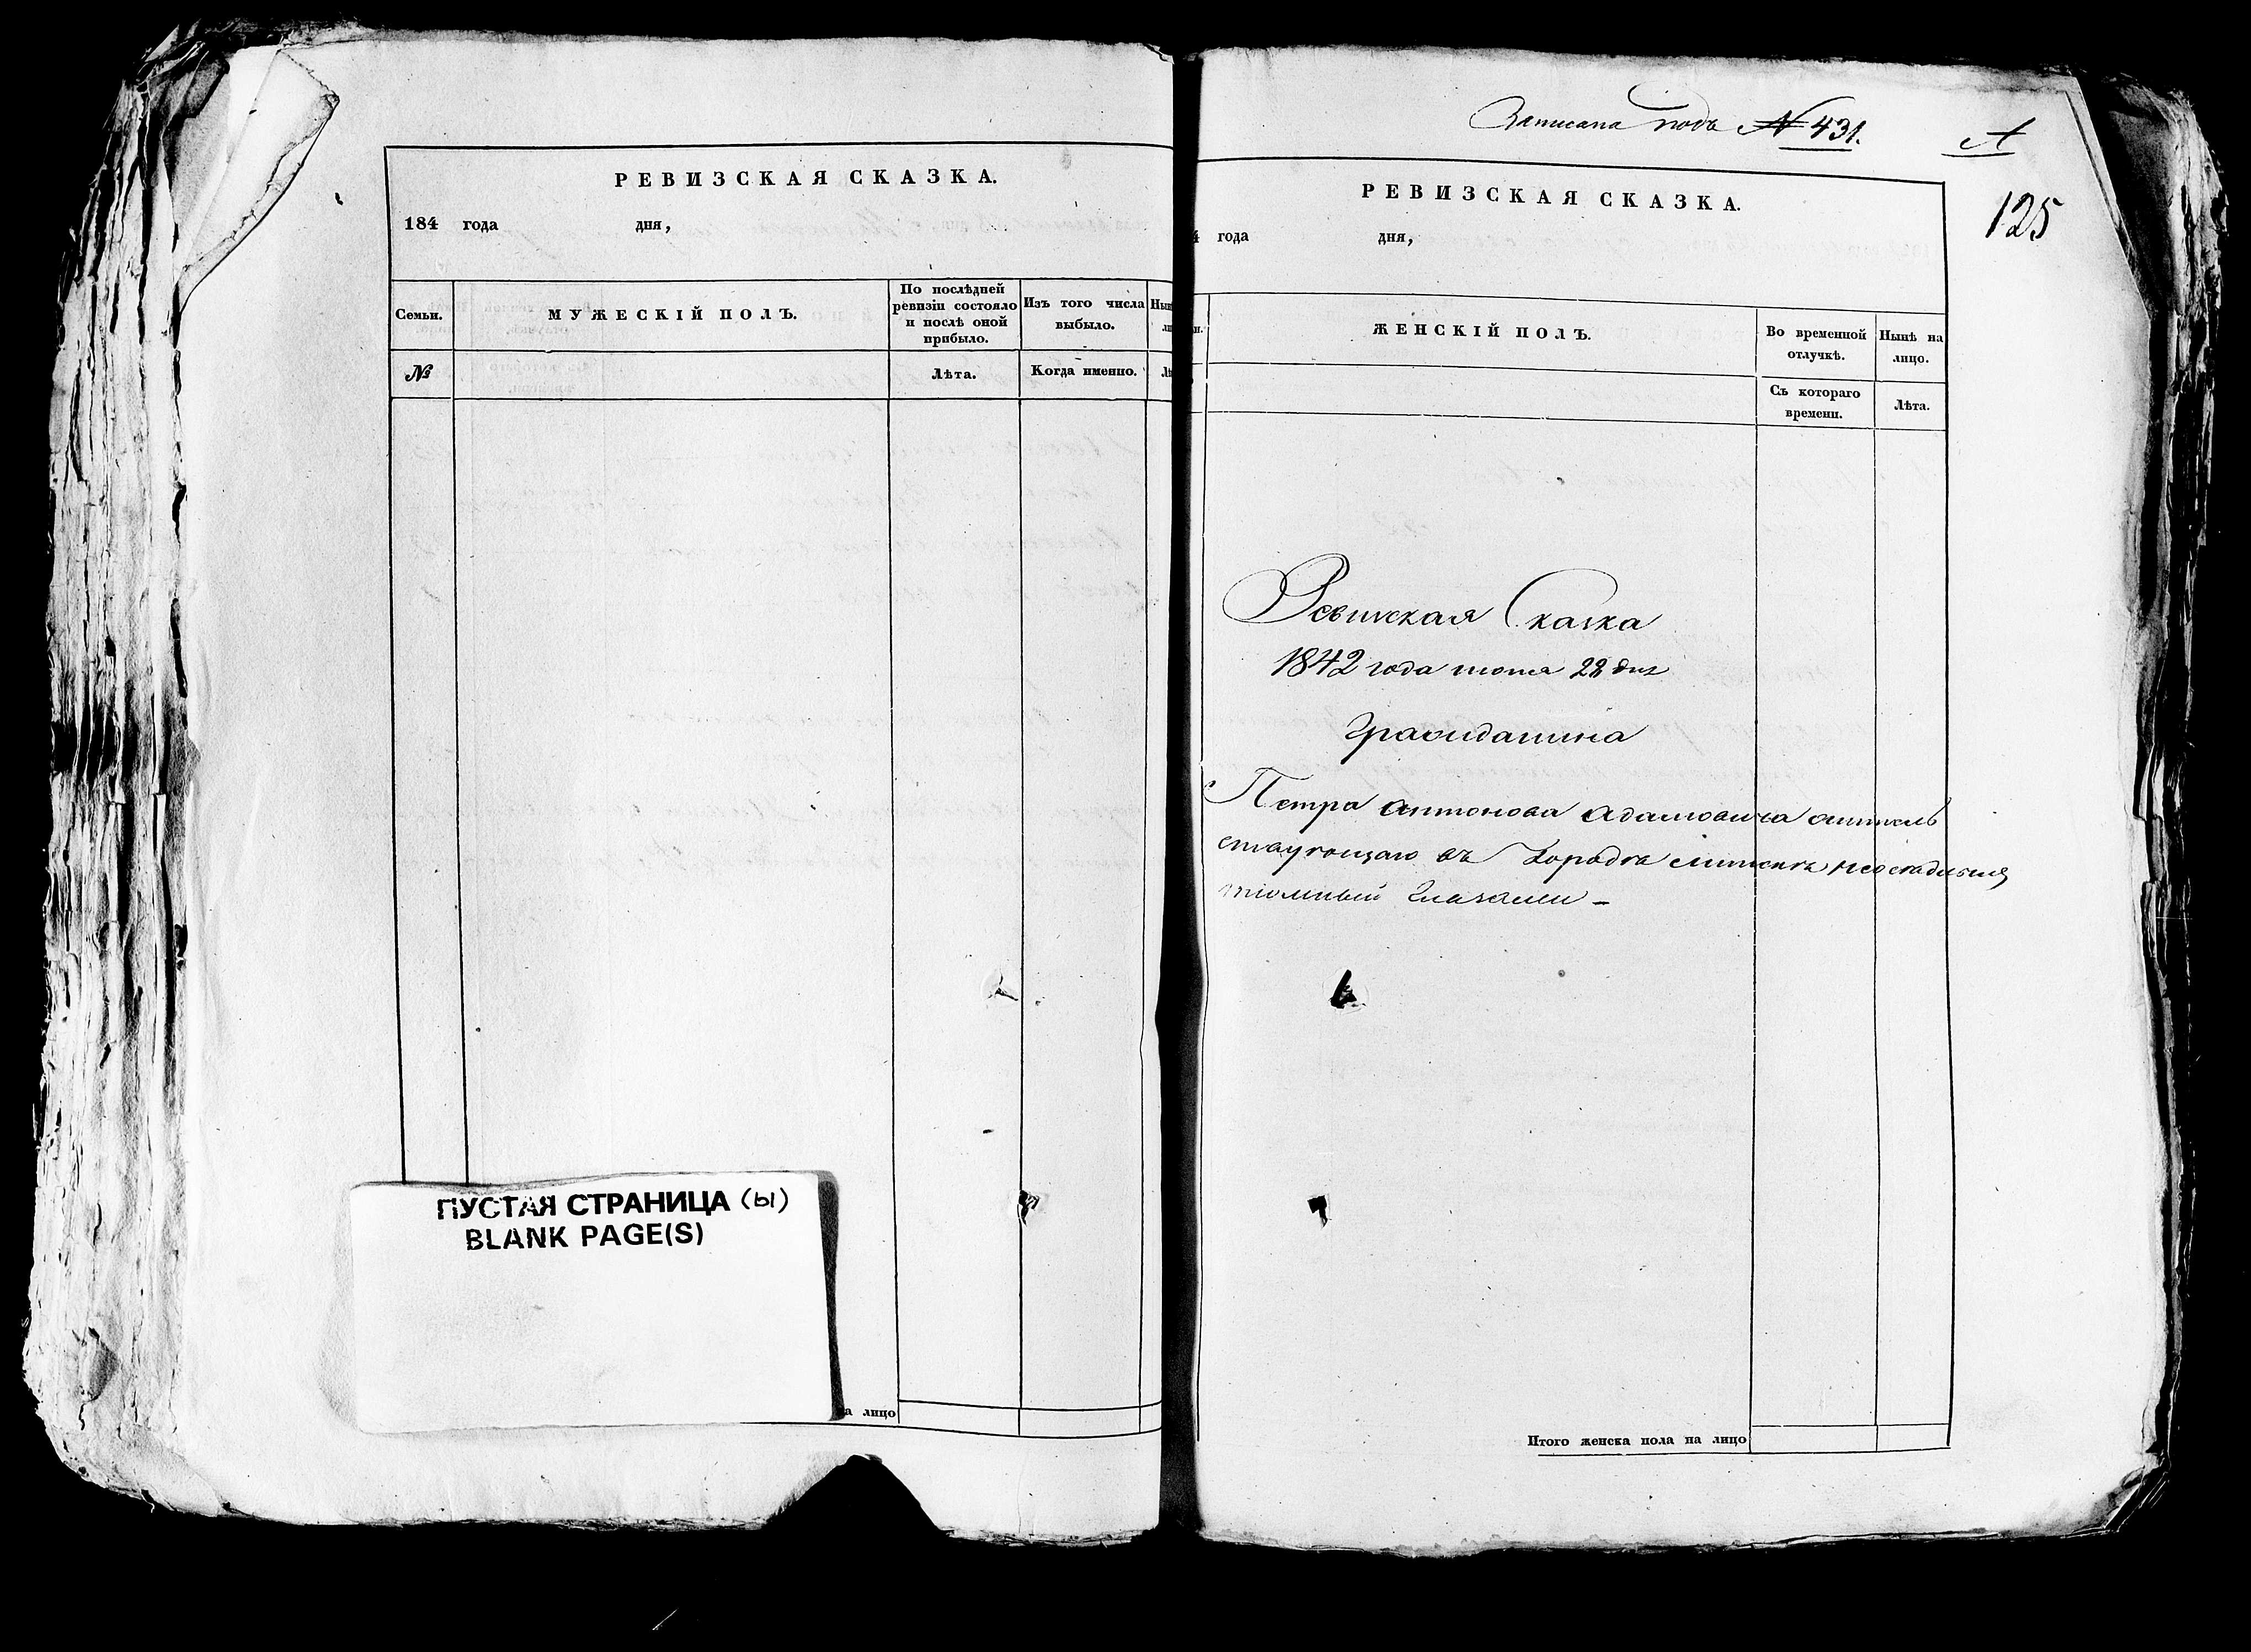 РЕВИЗСКАЯ СКАЗКА.
184 года дня,
Семьи.
МУЖЕСКІЙ ПОЛЪ.
По послѣдней
ревизіи состояло
и послѣ оной
прибыло.
Изъ того числа
выбыло.
№
Лѣта.
Когда именно.
ПУСТАЯ СТРАНИЦА (ы)
BLANK PAGE(S)
лицо
Записана подъ № 431.
А
125
РЕВИЗСКАЯ СКАЗКА.
4 года дня,
ЖЕНСКІЙ ПОЛЪ.
Во временной
отлучкѣ.
Нынѣ на
лицо.
Съ котораго
времени.
Лѣта.
Ревизская Сказка
1842 года июня 28 дня
Гражданина
Петра Антонова Адамовича жител
ствующаго въ Городѣ Минскѣ
глазами —
Итого женска пола на лицо